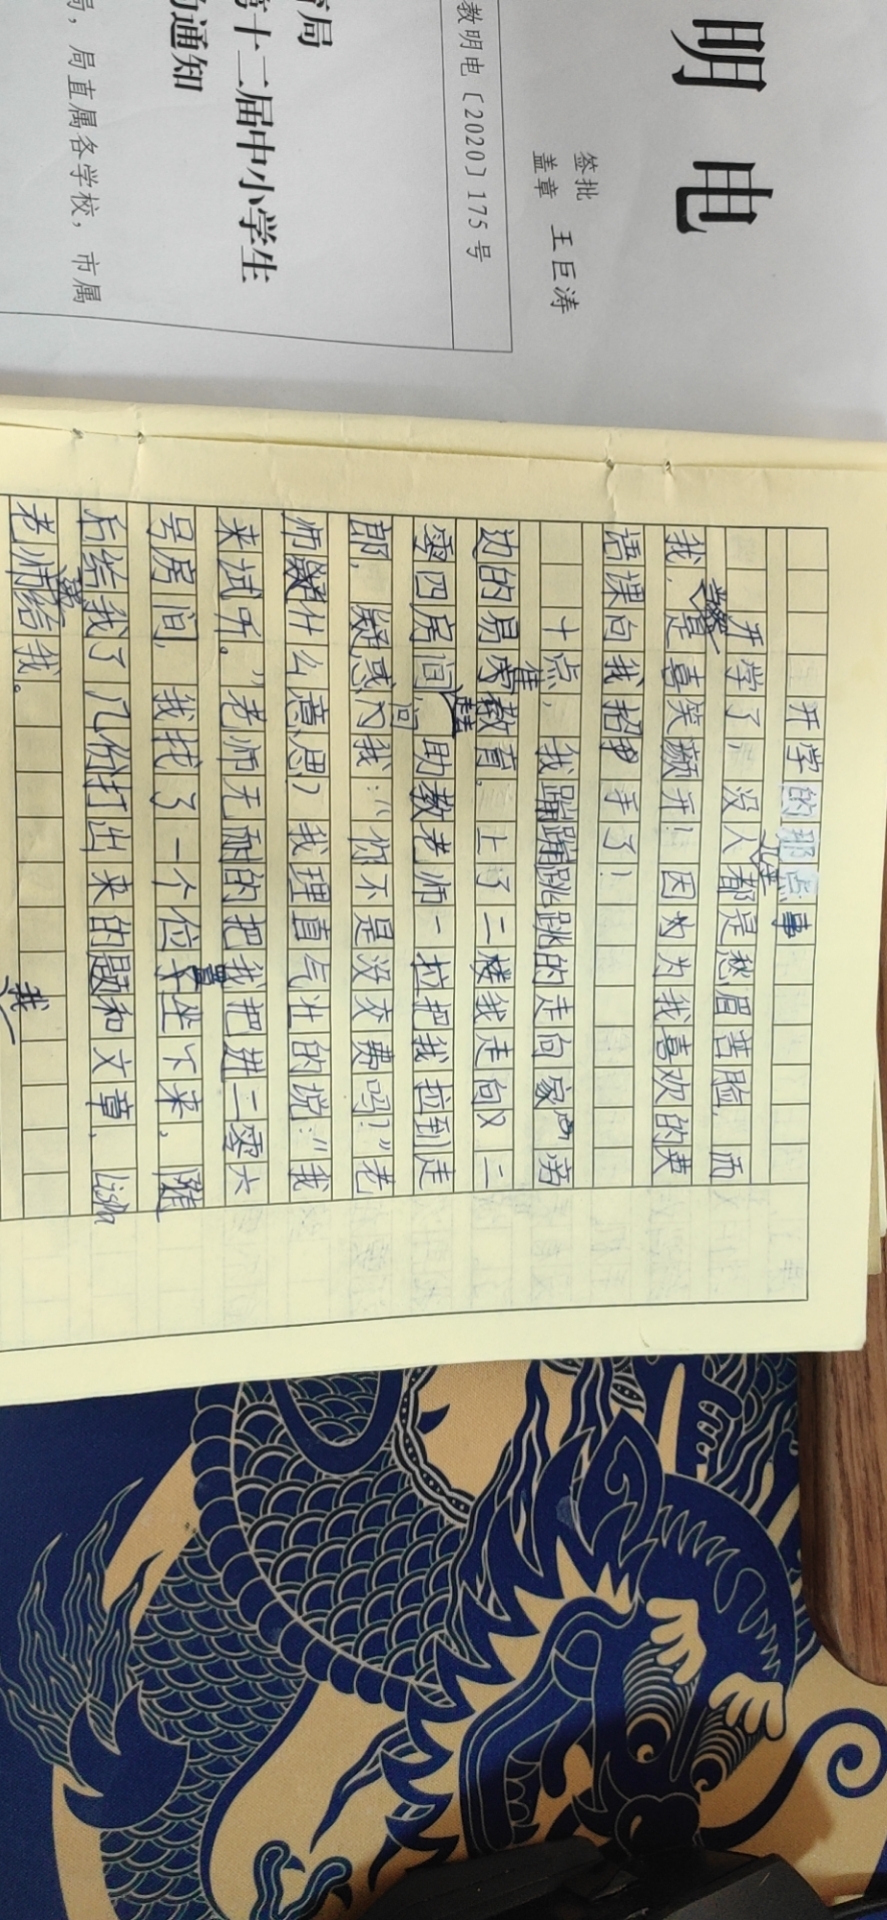 明 电
签批
盖章 王巨涛
教明电〔2020〕175号
育局
第十二届中小学生
的通知
局，局直属各学校，市属
开学的那点事
开学了，没人都是愁眉苦脸，而
我，是喜笑颜开！因为为我喜欢的英
语课向我招手了！
十点，我蹦蹦跳跳的走向家旁
边的易 教育，上了二楼我走向又二
零四房间 助教老师一拉把我拉到走
郎，疑惑问我：“你不是没交费吗？”老
师 什么意思？我理直气壮的说：“我
来试听。”老师无耐的把我把进二零六
号房间，我找了一个位 坐下来，随
后给我了几份打出来的题和文章，lisa
老师给我。
我